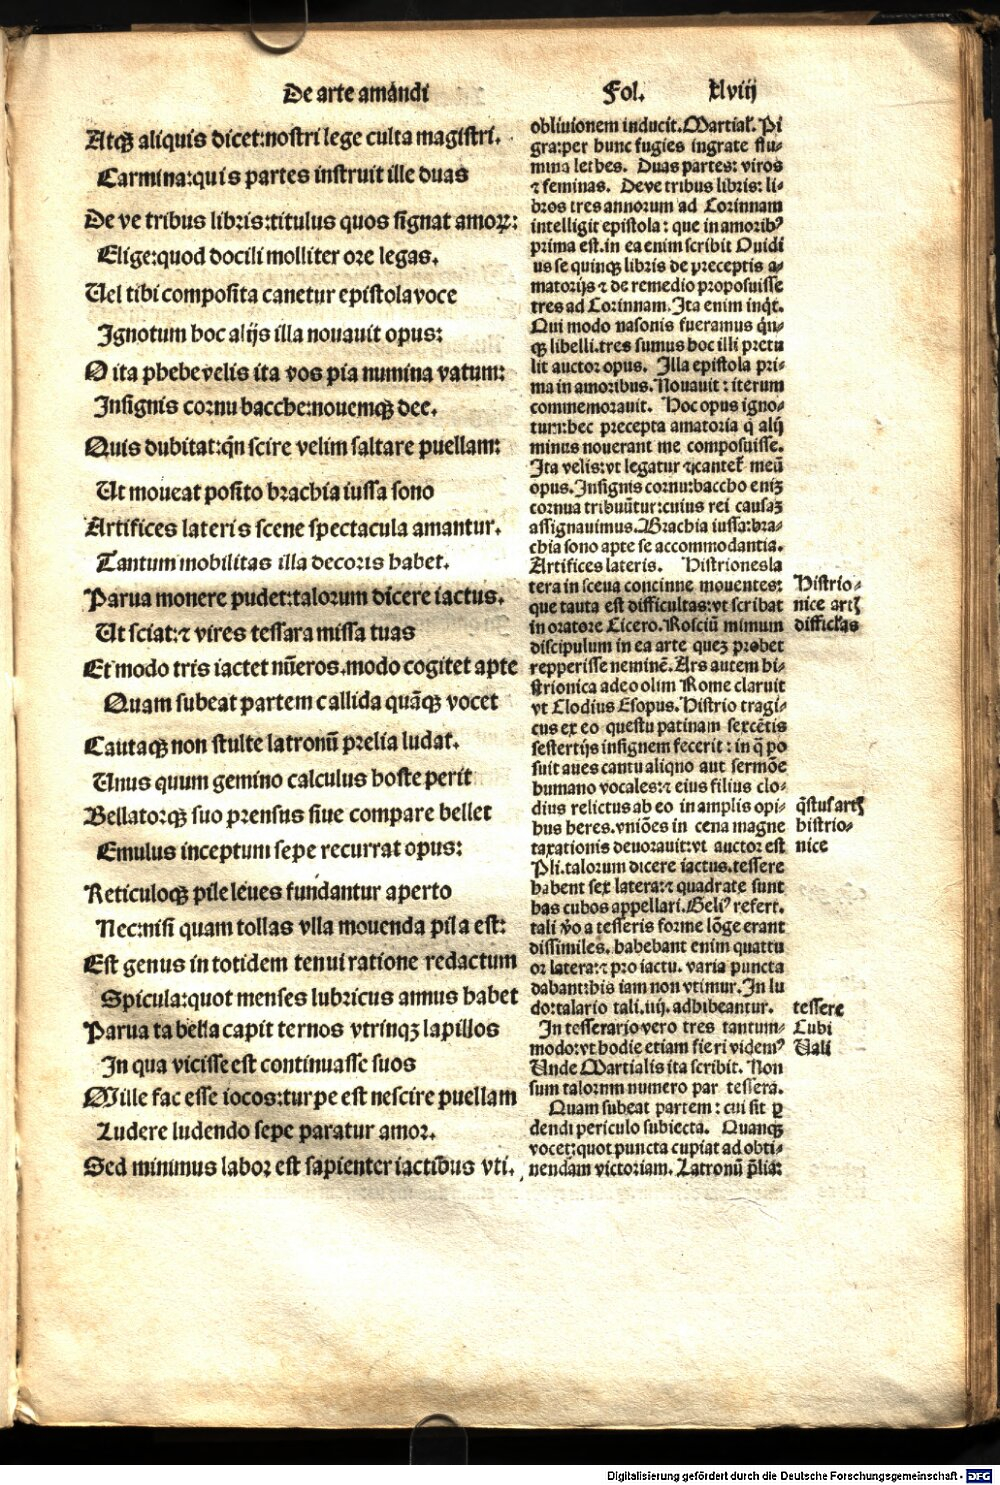 De arte amãndi Fol. xlviij
Atqꝫ aliquis dicet:nostri lege culta magistri.
Carmina:quis partes instruit ille duas
De ve tribus libris:titulus quos signat amoꝝ:
Elige:quod docili molliter ore legas.
Uel tibi composita canetur epistola voce
Ignotum hoc alijs illa nouauit opus:
O ita phebe velis ita vos pia numina vatum:
Insignis cornu bacche:nouemqꝫ dee.
Quis dubitat:qñ scire velim saltare puellam:
Ut moueat posito brachia iussa sono
Artifices lateris scene spectacula amantur.
Tantum mobilitas illa decoris habet.
Parua monere pudet:talorum dicere iactus.
Ut sciat:⁊ vires tessara missa tuas
Et modo tris iactet nũeros.modo cogitet apte
Quam subeat partem callida quãqꝫ vocet
Cautaqꝫ non stulte latronũ prelia ludat.
Unus quum gemino calculus hoste perit
Bellatorqꝫ suo prensus siue compare bellet
Emulus inceptum sepe recurrat opus:
Reticuloqꝫ pile leues fundantur aperto
Nec:nisi quam tollas vlla mouenda pila est:
Est genus in totidem tenui ratione redactum
Spicula:quot menses lubricus annus habet
Parua tabella capit ternos vtrinqꝫ lapillos
In qua vicisse est continuasse suos
Mille fac esse iocos:turpe est nescire puellam
Ludere ludendo sepe paratur amor.
Sed minimus labor est sapienter iactibus vti.
obliuionem inducit.Martial. Pi
gra:per hunc fugies ingrate flu-
mina lethes. Duas partes: viros
⁊ feminas. Deve tribus libris: li-
bros tres annorum ad Corinnam
intelligit epistola: que in amoribꝰ
prima est.in ea enim scribit Ouidi
us se quinqꝫ libris de preceptis a-
matorijs ⁊ de remedio proposuisse
tres ad Corinnam. Ita enim inq̇t.
Qui modo nasonis fueramus q̇n-
qꝫ libelli.tres sumus hoc illi pretu
lit auctor opus. Illa epistola pri-
ma in amoribus. Nouauit: iterum
commemorauit. Hoc opus igno-
tum:hec precepta amatoria q̄ alij
minus nouerant me composuisse.
Ita velis:vt legatur ⁊cantet̃ meũ
opus. Insignis cornu:baccho eniꝫ
cornua tribuũtur:cuius rei causaꝫ
assignauimus. Brachia iussa:bra-
chia sono apte se accommodantia.
Artifices lateris. Histriones la
tera in sceua concinne mouentes:
que tauta est difficultas:vt scribat
in oratore Cicero. Rosciũ mimum
discipulum in ea arte queꝫ probet
repperisse neminẽ. Ars autem hi-
strionica adeo olim Rome claruit
vt Clodius Esopus. Histrio tragi-
cus ex eo questu patinam sexcẽtis
sestertijs insignem fecerit: in q̃ po
suit aues cantu aliqno aut sermõe
humano vocales:⁊ eius filius clo-
dius relictus ab eo in amplis opi-
bus heres.vniões in cena magne
taxationis deuorauit:vt auctor est
Pli.talorum dicere iactus.tessere
habent sex latera:⁊ quadrate sunt
has cubos appellari. Geliꝰ refert.
tali ṽo a tesseris forme lõge erant
dissimiles. habebant enim quattu
or latera:⁊ pro iactu. varia puncta
dabant:his iam non vtimur. In lu
do:talario tali.iiij. adhibeantur.
In tesserario vero tres tantum-
modo:vt hodie etiam fieri videmꝰ
Unde Martialis ita scribit. Non
sum talornm numero par tessera.
Quam subeat partem: cui sit ꝑ
dendi periculo subiecta. Quanqꝫ
vocet:quot puncta cupiat ad obti-
nendam victoriam. Latronũ p̃lia:
Histrio-
nice artꝭ
difficl̃as
q̃stus artꝭ
histrio-
nice
tessere
Cubi
Uali
Digitalisierung gefördert durch die Deutsche Forschungsgemeinschaft - DFG